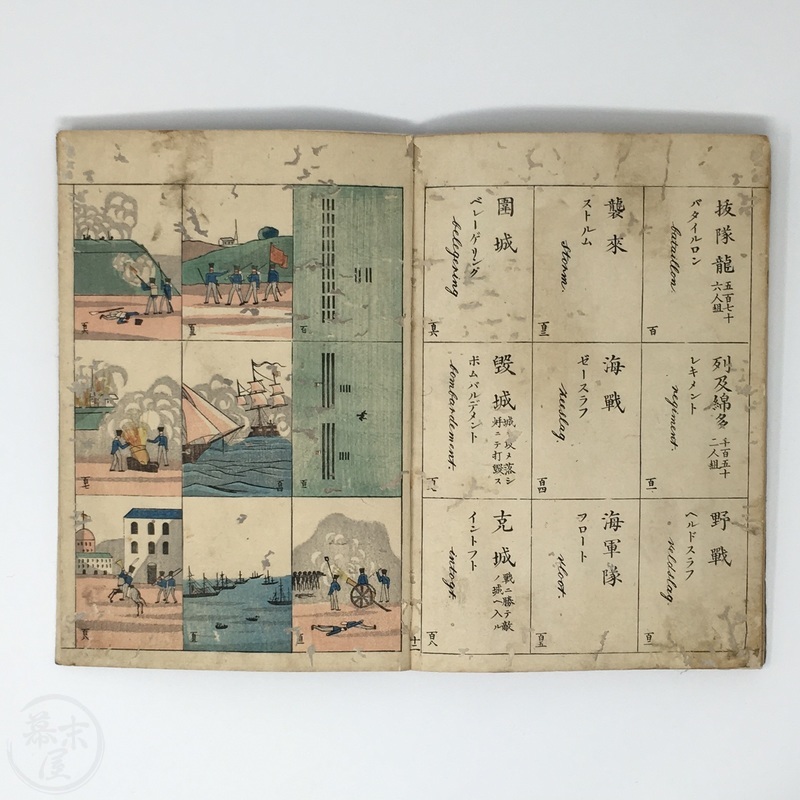 抜隊龍 五百七十六人組
バタイルロン
bataillon.
百
列及綿多 千百五十二人組
レキメント
regiment.
百一
野戰
ヘルドスラフ
veldslag
百二
襲來
ストルム
Storm.
百三
海戰
ゼースラフ
zeeslag
百四
海軍隊
フロート
vloot.
百五
圍城
ベレーゲリング
belegering
百六
毀城 城ヲ攻メ落シ 并ニテ打毀ス
ボムバルデメント
bombardement.
百七
克城 戰ニ勝テ敵ノ城ヘ入ル
イントフト
intogt.
百八
十二
百
百一
百二
百三
百四
百五
百六
百七
百八
幕末屋